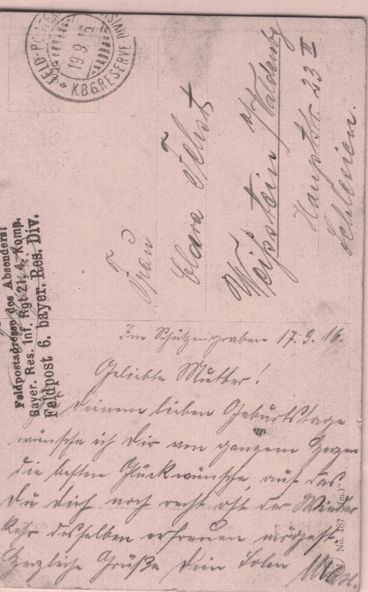 FELD-POSTEX
19.9.16
K.B.6.RESERVE DIVISION
Feldpostadresse des Absenders:
Bayer. Res. Inf. Rgt 21, 4. Komp.
Feldpost 6. bayer. Res. Div.
Frau
Clara
Weißstein /Waldenbg
Hauptstr. 23 II
Schlesien.
Im Schützengraben 17.9.16.
Geliebte Mutter!
Deinem lieben Geburtstage
wünsche ich Dir von ganzem Herzen
die besten Glückwünsche, auf das
Du Dich noch recht oft der Wieder
kehr desselben erfreuen mögest.
Herzliche Grüße Dein
No. 187